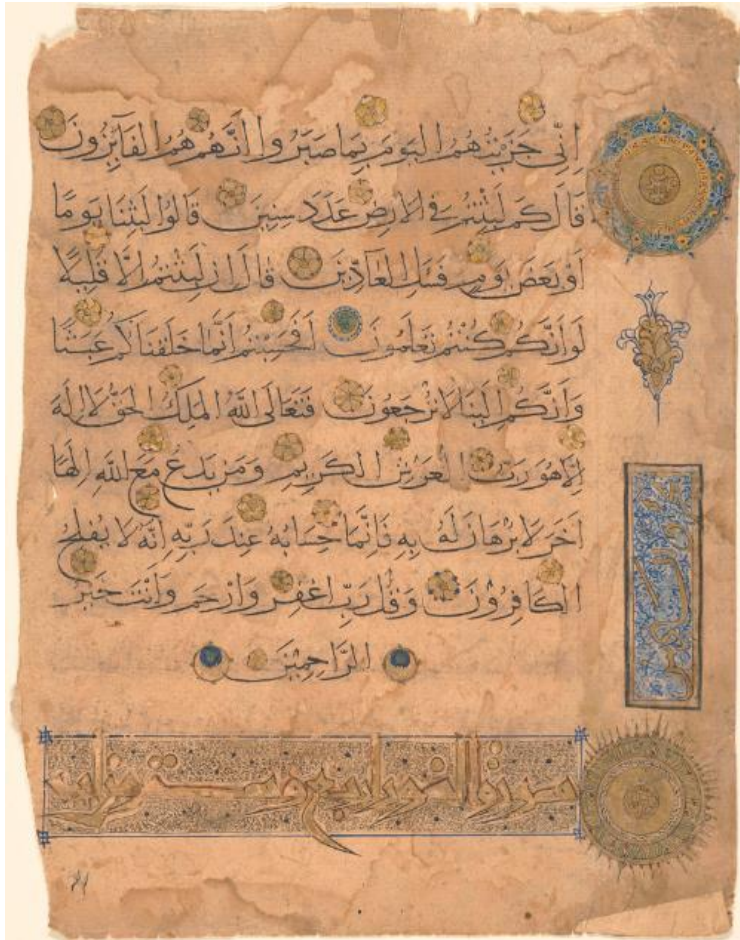 اِنِّي جَزَيْتُهُمُ الْيَوْمَ بِمَا صَبَرُوا اَنَّهُمْ هُمُ الْفَآئِزُونَ
قَالَ كَمْ لَبِثْتُمْ فِي الْاَرْضِ عَدَدَ سِنِينَ قَالُوا لَبِثْنَا يَوْمًا
اَوْ بَعْضَ يَوْمٍ فَسْئَلِ الْعَآدِّينَ قَالَ اِنْ لَبِثْتُمْ اِلَّا قَلِيلًا
لَوْ اَنَّكُمْ كُنْتُمْ تَعْلَمُونَ اَفَحَسِبْتُمْ اَنَّمَا خَلَقْنَاكُمْ عَبَثًا
وَاَنَّكُمْ اِلَيْنَا لَا تُرْجَعُونَ فَتَعَالَى اللّٰهُ الْمَلِكُ الْحَقُّ لَا اِلٰهَ
اِلَّا هُوَ رَبُّ الْعَرْشِ الْكَرِيمِ وَمَنْ يَدْعُ مَعَ اللّٰهِ اِلٰهًا
اٰخَرَ لَا بُرْهَانَ لَهُ بِهِ فَاِنَّمَا حِسَابُهُ عِنْدَ رَبِّهِ اِنَّهُ لَا يُفْلِحُ
الْكَافِرُونَ وَقُلْ رَبِّ اغْفِرْ وَارْحَمْ وَاَنْتَ خَيْرُ
الرَّاحِمِينَ
سورة النور اربع وستون اية